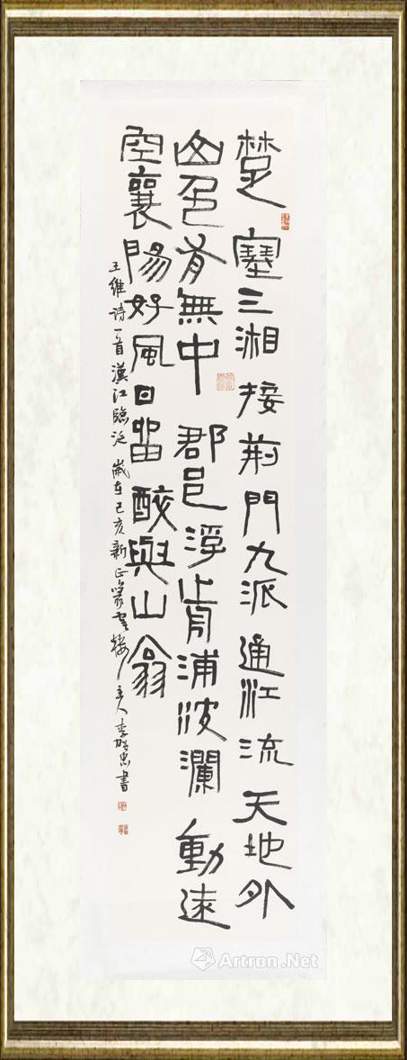 楚塞三湘接荊門九派通江流天地外
山色有無中郡邑浮前浦波瀾動遠
空襄陽好風日留醉與山翁
王維诗一首漢江臨泛歲在己亥新正主人李忠書
Artron.Net